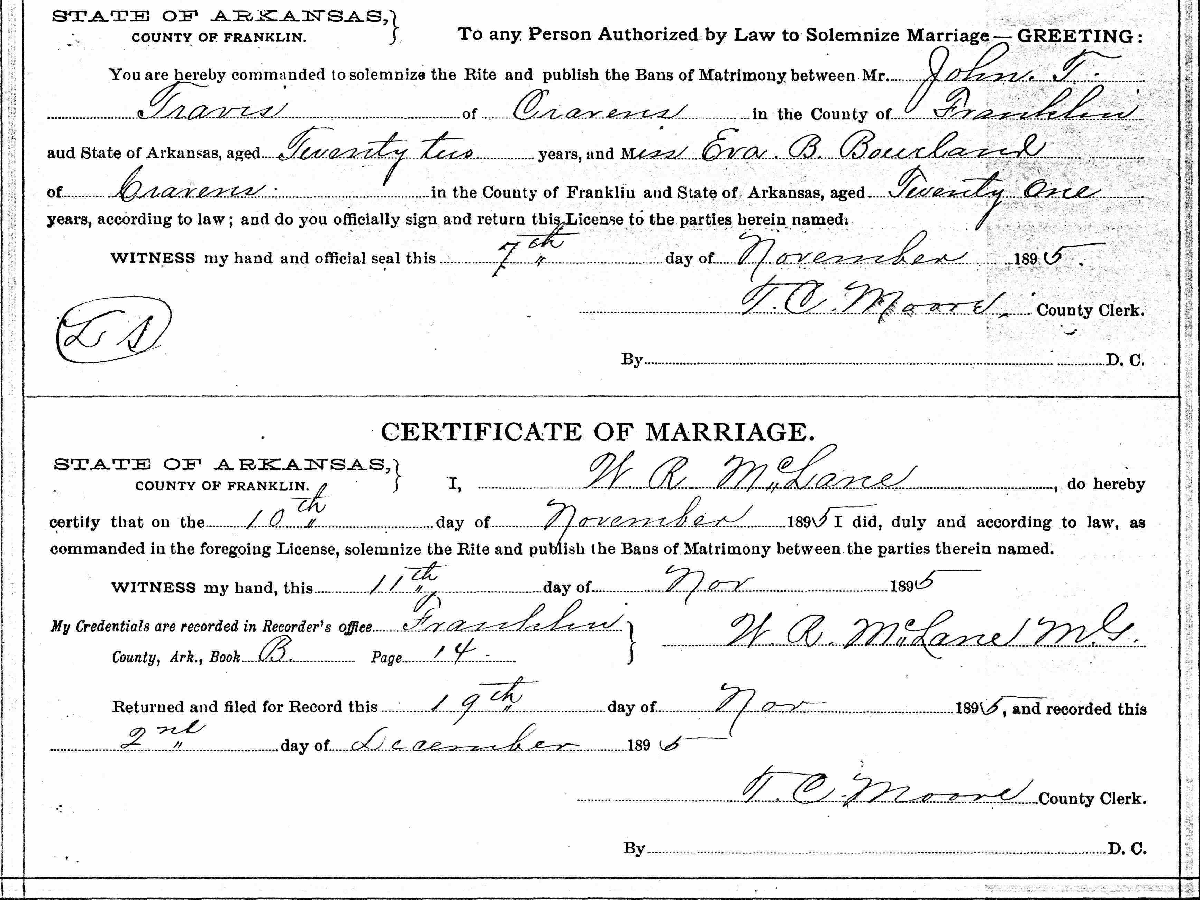 STATE OF ARKANSAS,}
COUNTY OF FRANKLIN.
To any Person Authorized by Law to Solemnize Marriage — GREETING:
You are hereby commanded to solemnize the Rite and publish the Bans of Matrimony between Mr. John. T.
Travis of Cravens in the County of Franklin
and State of Arkansas, aged Twenty two years, and Miss Eva. B. Bourland
of Cravens. in the County of Franklin and State of Arkansas, aged Twenty One
years, according to law; and do you officially sign and return this License to the parties herein named.
WITNESS my hand and official seal this 7th day of November 1895.
T. C. Moore. County Clerk.
L S
By D. C.
CERTIFICATE OF MARRIAGE.
STATE OF ARKANSAS,}
COUNTY OF FRANKLIN.
I, W R McLane, do hereby
certify that on the 10th day of November 1895 I did, duly and according to law, as
commanded in the foregoing License, solemnize the Rite and publish the Bans of Matrimony between the parties therein named.
WITNESS my hand, this 11th day of Nov 1895
My Credentials are recorded in Recorder's office Franklin }
County, Ark., Book B. Page 14
W R. McLane M.G.
Returned and filed for Record this 19th day of Nov 1895, and recorded this
2nd day of December 1895
T. C. Moore County Clerk.
By D. C.